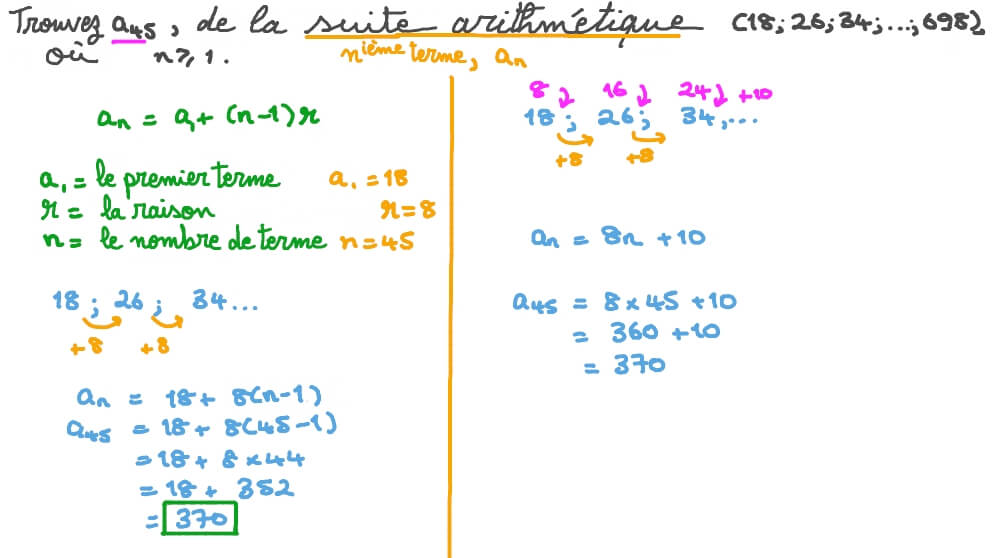 Trouvez a₄₅, de la suite arithmétique (18; 26; 34; ...; 698),
où n ⩾ 1.
nième terme, aₙ
aₙ = a₁ + (n-1)r
a₁ = le premier terme a₁ = 18
r = la raison r = 8
n = le nombre de terme n = 45
18 ; 26 ; 34 ...
+8 +8
aₙ = 18 + 8(n-1)
a₄₅ = 18 + 8(45-1)
= 18 + 8 × 44
= 18 + 352
= 370
8 16 24 +10
18 ; 26 ; 34, ...
+8 +8
aₙ = 8n + 10
a₄₅ = 8 × 45 + 10
= 360 + 10
= 370